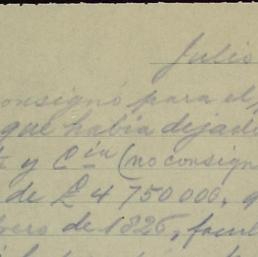 Julio
consignó para el
que había dejado
y Cía (no consign
de £ 4 750 000,
brero de 1826,